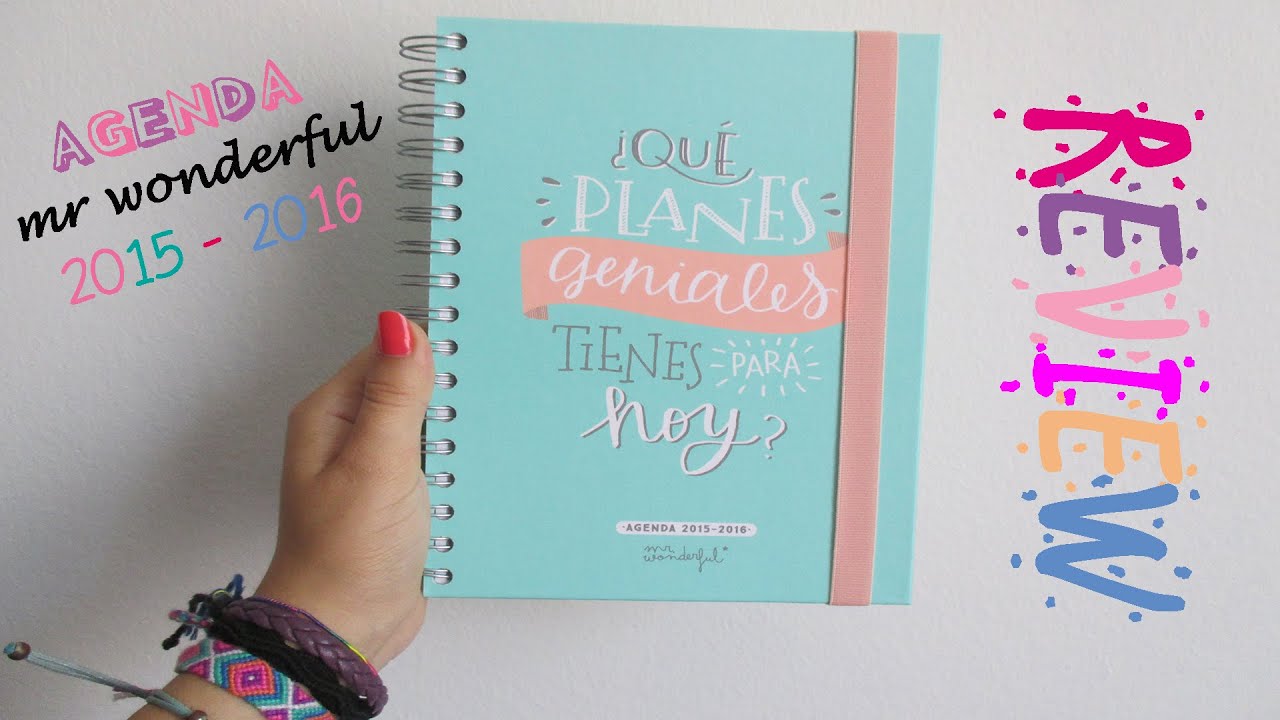 AGENDA
mr wonderful
2015 - 2016
¿QUÉ
PLANES
geniales
TIENES PARA
hoy?
·AGENDA 2015-2016·
mr
wonderful*
REVIEW